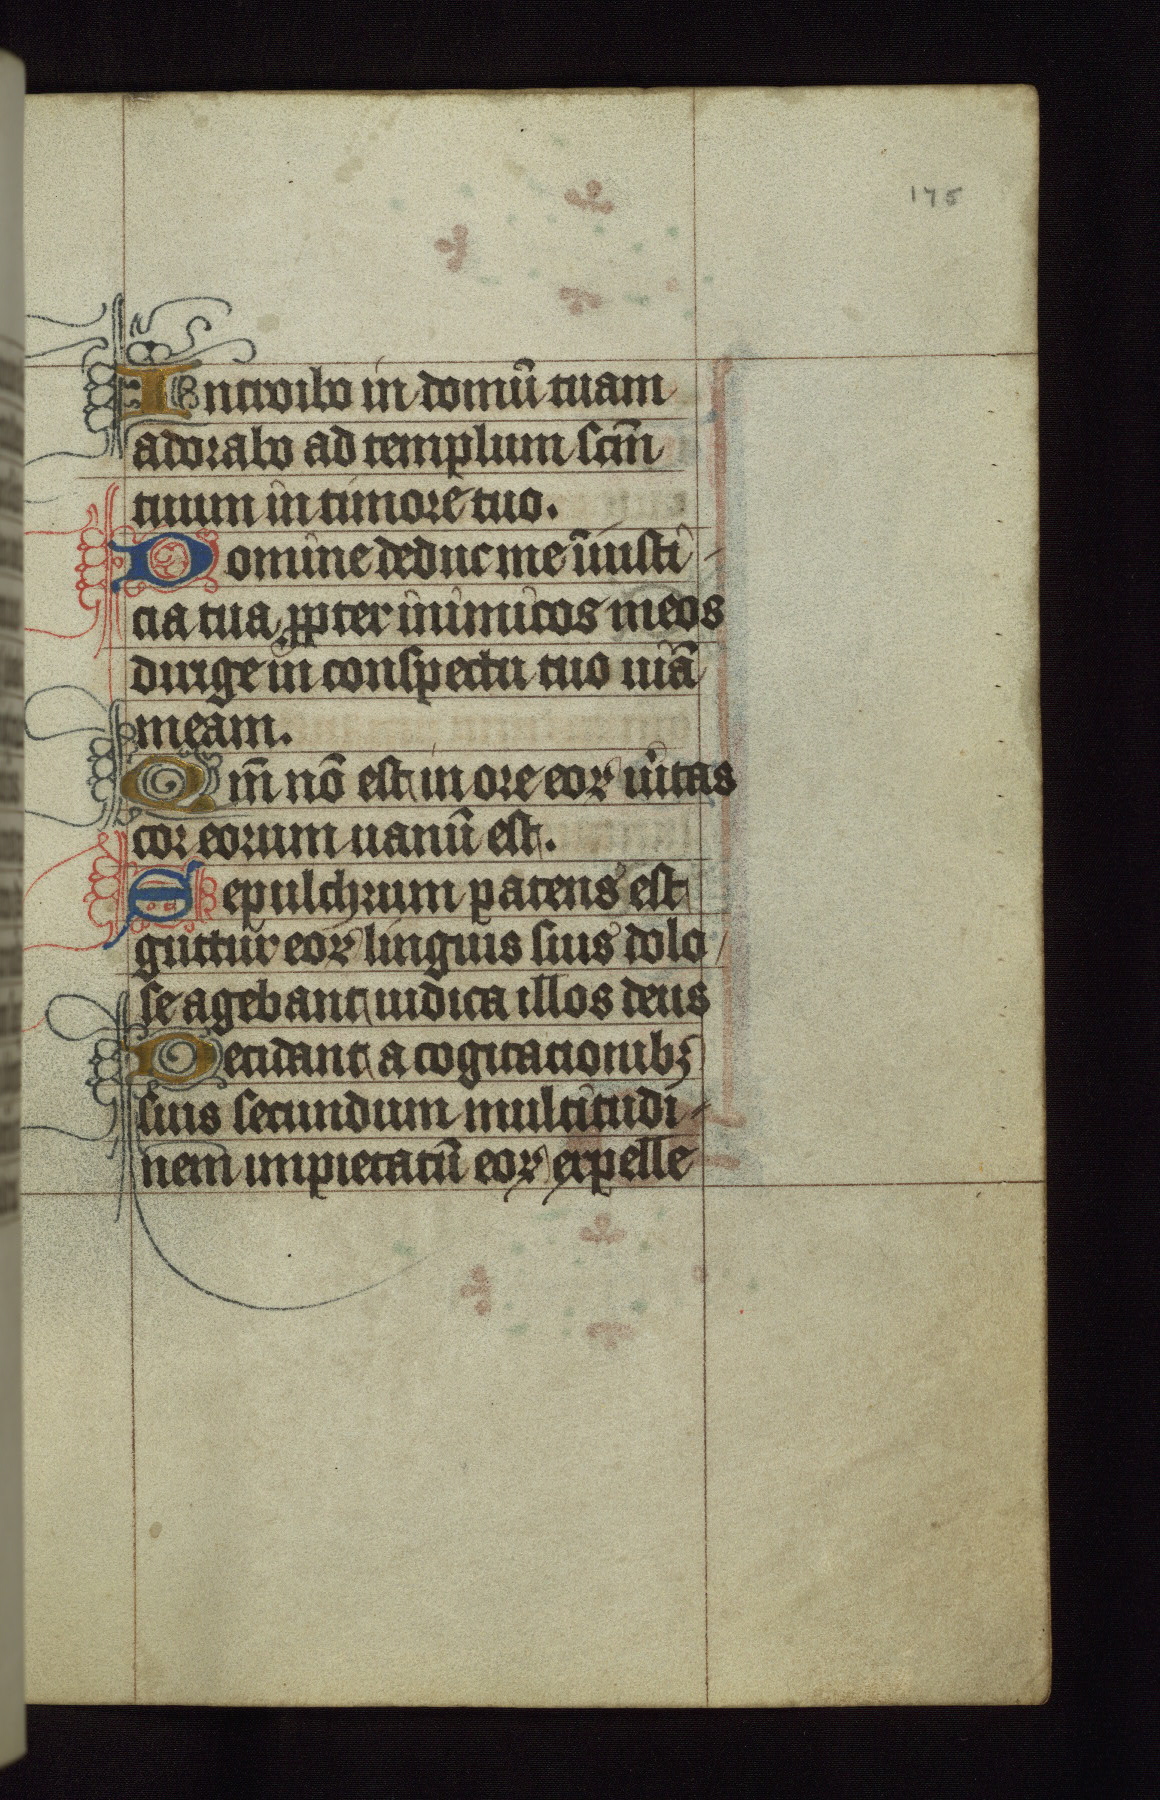 175
Introibo in domū tuam
adorabo ad templum scm̄
tuum in timore tuo.
Domine deduc me ī iusti-
cia tua ꝓpter inimicos meos
dirige in conspectu tuo uiā
meam.
Qm̄ nō est in ore eoꝝ ũitas
cor eorum uanū est.
Sepulchrum patens est
guttur eoꝝ linguis suis dolo/
se agebant iudica illos deus
Decidant a cogitacionibꝫ
suis secundum multitudi-
nem impietatū eoꝝ expelle